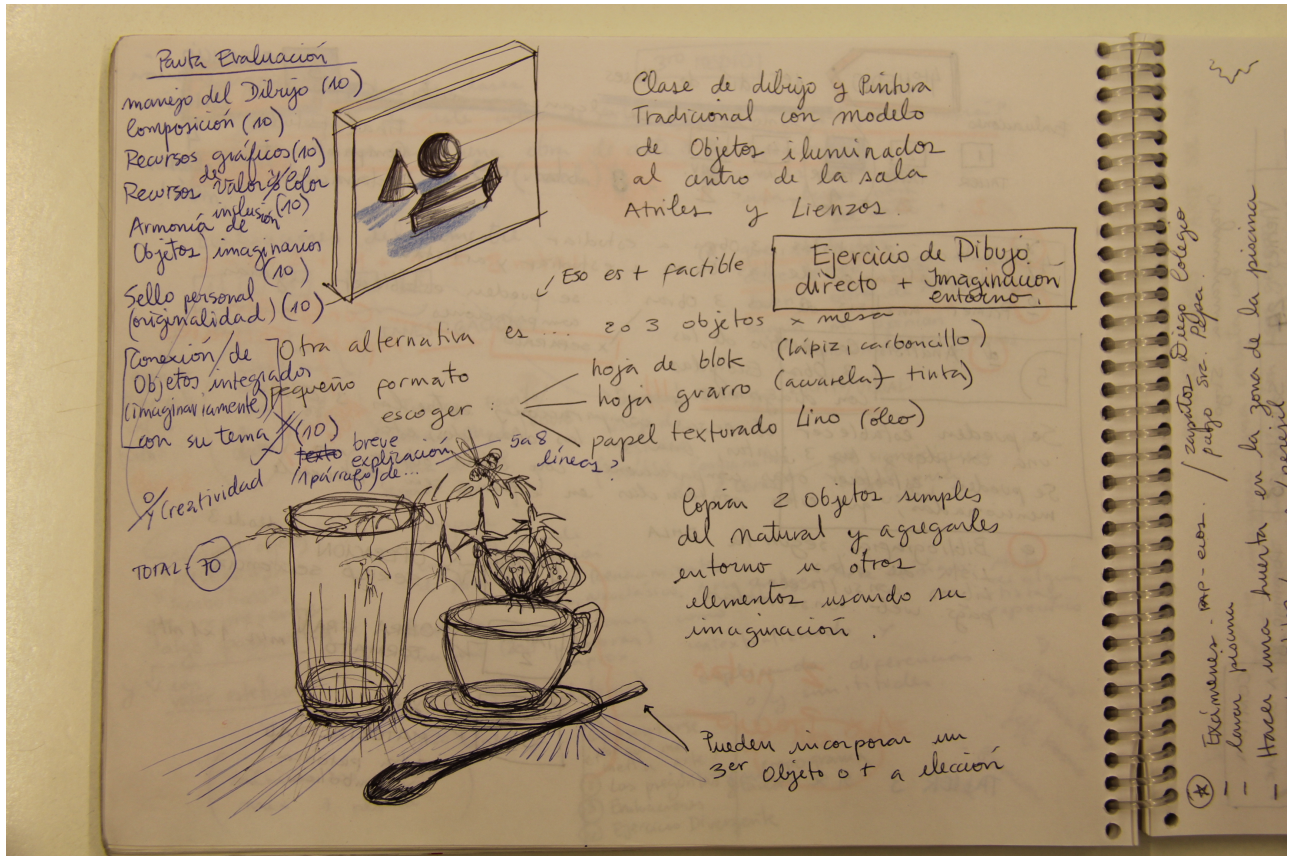 Pauta Evaluación
manejo del Dibujo (10)
Composición (10)
Recursos gráficos (10)
Recursos de Valor y/o Color (10)
Armonía de inclusión
Objetos imaginarios
(10)
Sello personal
(originalidad) (10)
Conexión/de
Objetos integrados
(imaginariamente)
con su tema (10)
y/o Creatividad
texto breve
explicación
/1 párrafo/de...
5 a 8
líneas
TOTAL = 70
Clase de dibujo y Pintura
Tradicional con modelo
de Objetos iluminados
al centro de la sala
Atriles y Lienzos.
Ejercicio de Dibujo
directo + Imaginación
entorno.
Eso es + factible
Otra alternativa es ... 2 o 3 objetos x mesa
pequeño formato
escoger :
hoja de blok (lápiz, carboncillo)
hoja guarro (acuarela) tinta)
papel texturado Lino (óleo)
Copiar 2 Objetos simples
del natural y agregarles
entorno u otros
elementos usando su
imaginación.
Pueden incorporar un
3er Objeto o + a elección
/ zapatos Diego Colegio
/ pago Sra. Pepa.
Exámenes - PAP -
- lavar piscina
- Hacer una huerta en la zona de la piscina
/perejil